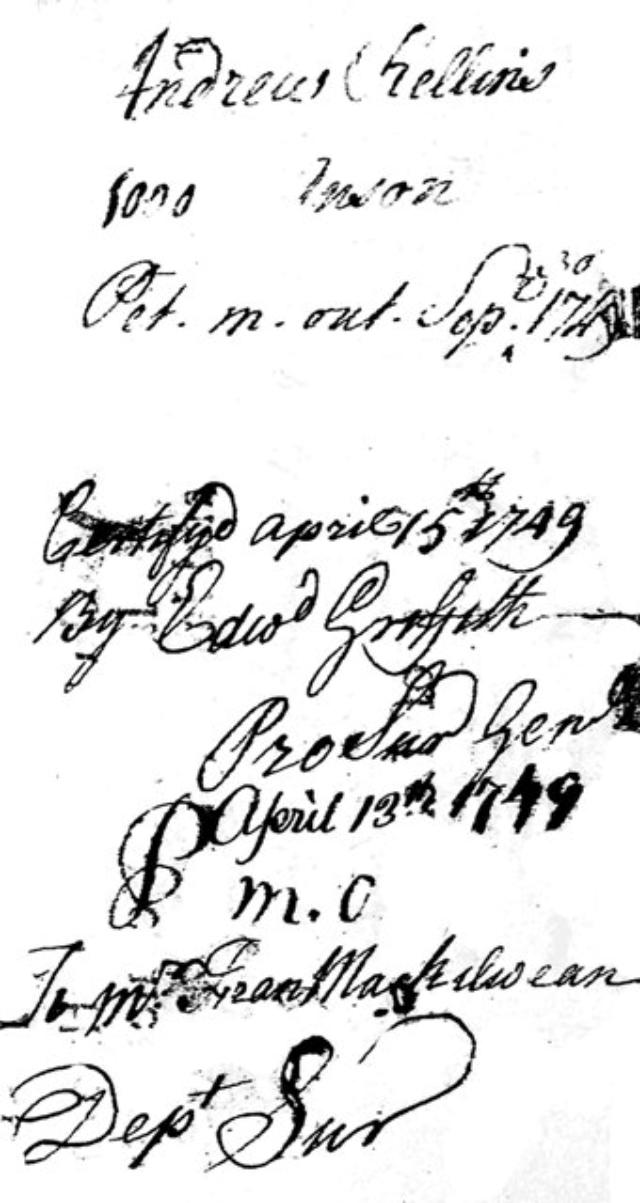 Andreus Chellins
1000 Inson
Pet. m. out. Sep.
Certifyd april 15th 1749
By Edwd Griffith
Pro Sur Genl
April 13th 1749
m. C
To mr Fran Mackilwean
Dept Sur